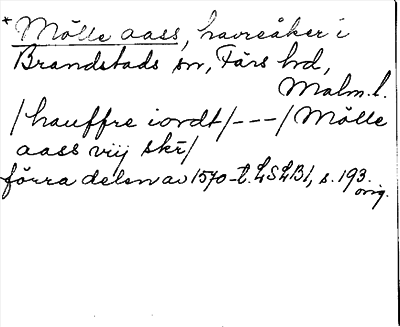 * Mölle aass, havreåker i
Brandstads sn, Färs hrd,
Malm. l.
/hauffre iordt/---/Mölle
aass viij skr/
förra delen av 1570-t. LSLB1, s. 193.
orig.